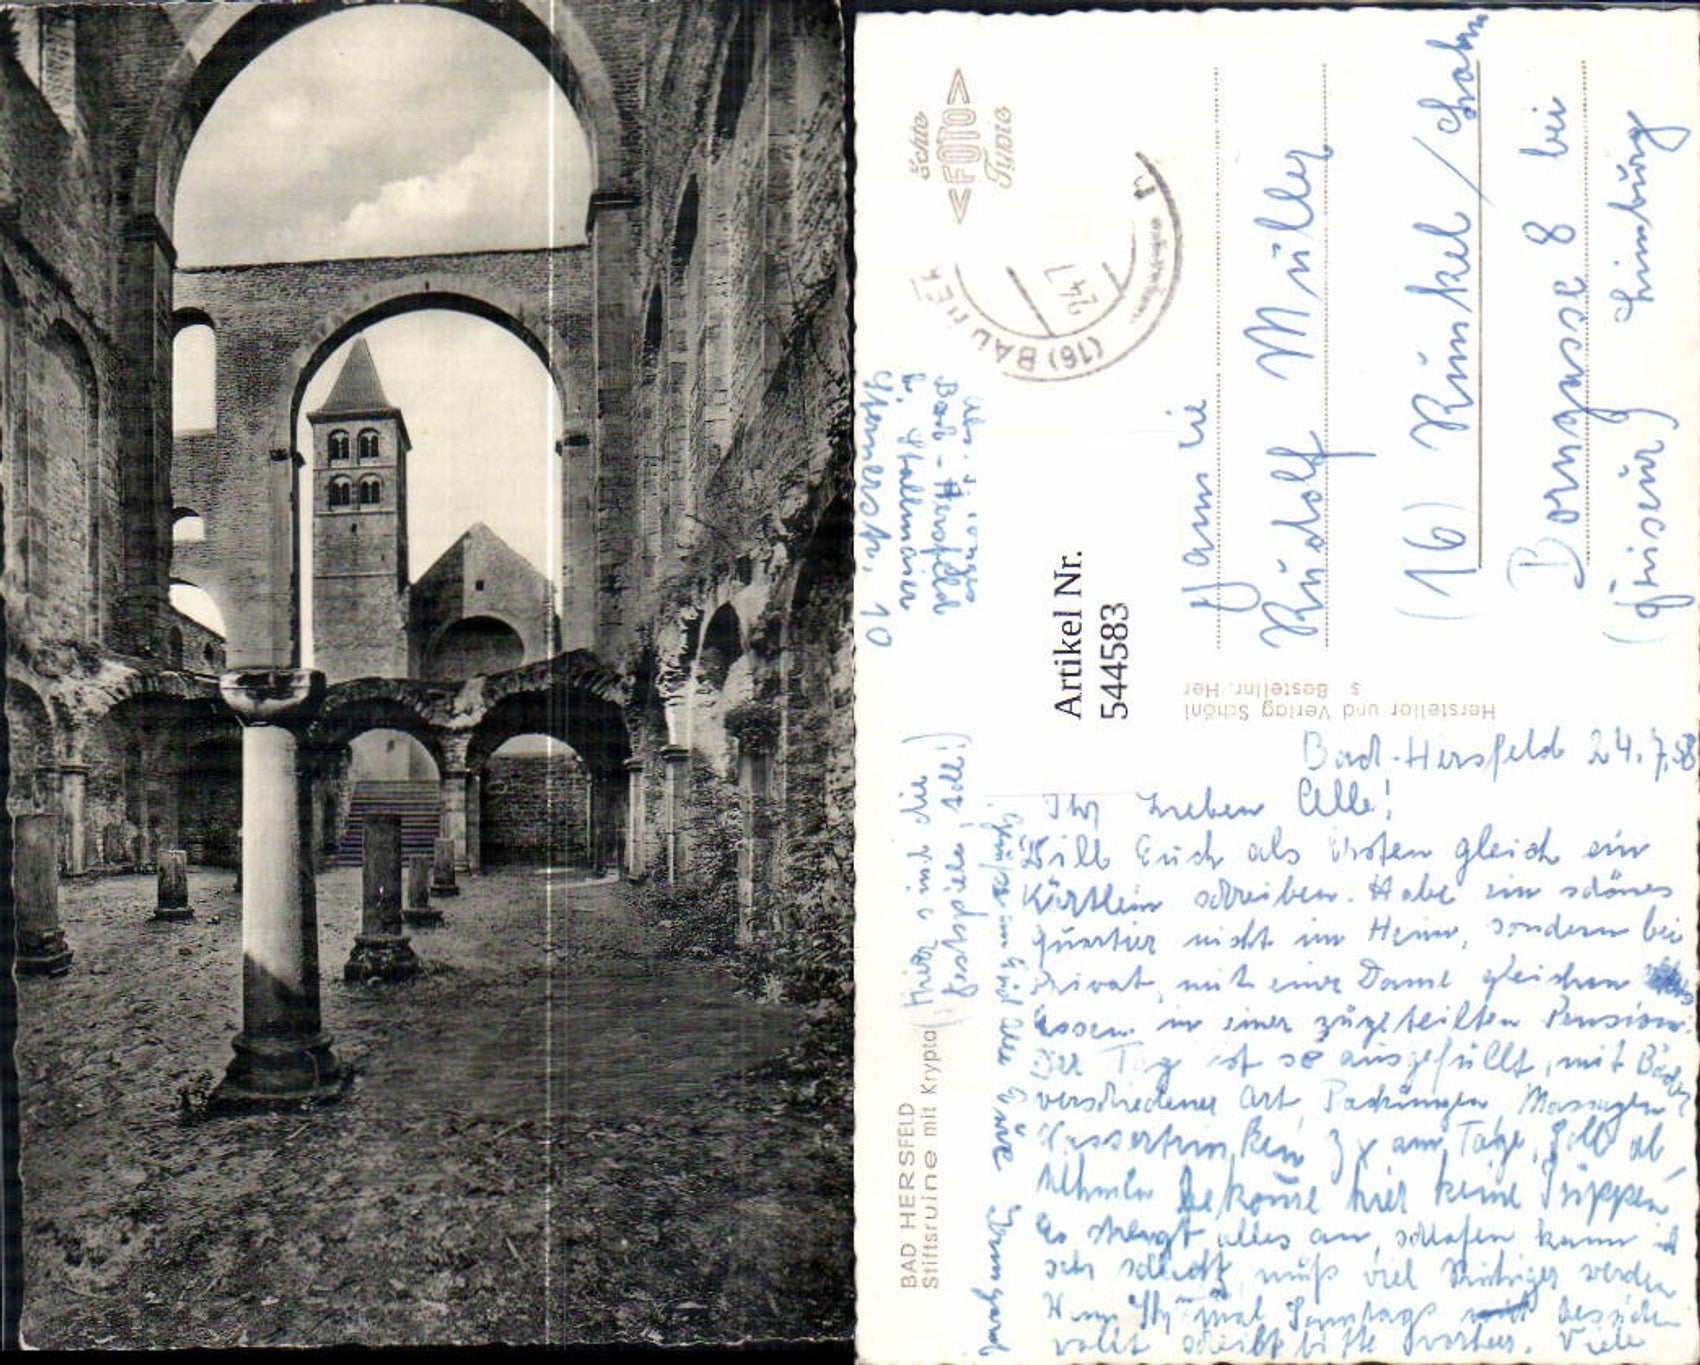 BAD HERSFELD
Stiftsruine mit Krypta
(hier sind die
Festspiele! toll!)
Echte
<FOTO>
Typie
(16) BAD HER
24.7.
Artikel Nr.
544583
Hersteller und Verlag Schöni
s Bestellnr. Her
Bad-Hersfeld
b. Stallmaier
10
Bad-Hersfeld 24.7.58
Ihr Lieben Alle!
Will Euch als Ersten gleich ein
Kärtlein schreiben. Habe ein schönes
Quartier nicht im Heim, sondern bei
Privat, mit einer Dame gleichen
Essen in einer zugeteilten Pension.
Der Tag ist so ausgefüllt, mit Bäder
verschiedener Art, Packungen, Massagen
3 x am Tage,
bekomme hier keine Suppen
Es strengt alles an, schlafen kann ich
sehr schlecht, muß viel ruhiger werden
Wenn Ihr mal Sonntags
wollt schreibt bitte vorher. Viele
Familie
Rudolf Müller
(16) Runkel / Lahn
Borngasse 8 bei
(Friseur) Limburg